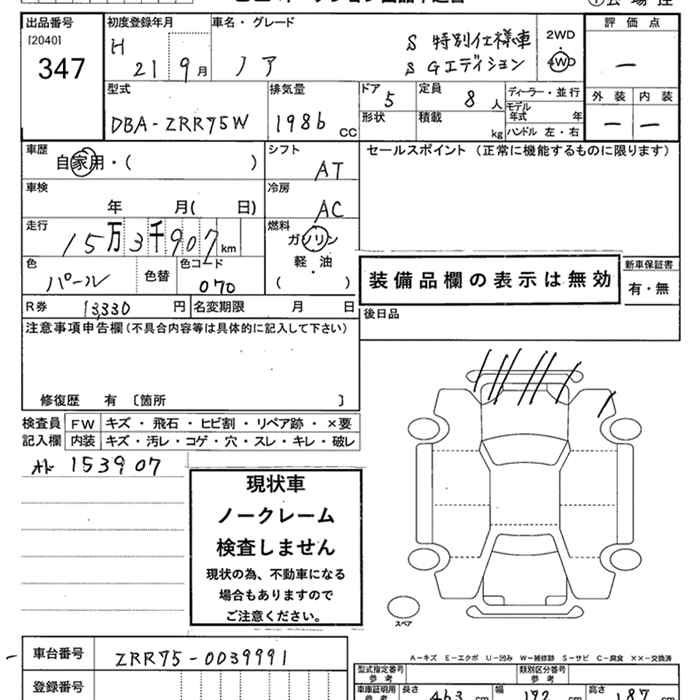 出品番号
[2040]
347
初度登録年月
H 21 9月
車名・グレード
ノア
S 特別仕様車
S Gエディション
2WD
4WD
評価点
ー
外装 内装
ー ー
型式
DBA-ZRR75W
排気量
1986 CC
ドア 5
定員 8人
形状
積載 kg
ディーラー・並行
モデル年式 年
ハンドル 左・右
車歴
自家用・( )
シフト
AT
セールスポイント (正常に機能するものに限ります)
車検
年 月( 日)
冷房
AC
走行
15万3千907km
燃料
ガソリン
軽・油
( )
色
パール
色替
色コード
070
装備品欄の表示は無効
新車保証書
有・無
R券 13,330 円
名変期限 月 日
後日品
注意事項申告欄(不具合内容等は具体的に記入して下さい)
修復歴 有 〔箇所 〕
検査員記入欄
FW キズ・飛石・ヒビ割・リペア跡・×要
内装 キズ・汚レ・コゲ・穴・スレ・キレ・破レ
オド 153907
現状車
ノークレーム
検査しません
現状の為、不動車になる
場合もありますので
ご注意ください。
スペア
車台番号 ZRR75-0039991
登録番号
A-キズ E-エクボ U-凹み W-補修跡 S-サビ C-腐食 ××-交換済
型式指定番号 参考
類別区分番号 参考
車庫証明用 参考
長さ 463 cm
幅 172 cm
高さ 187 cm